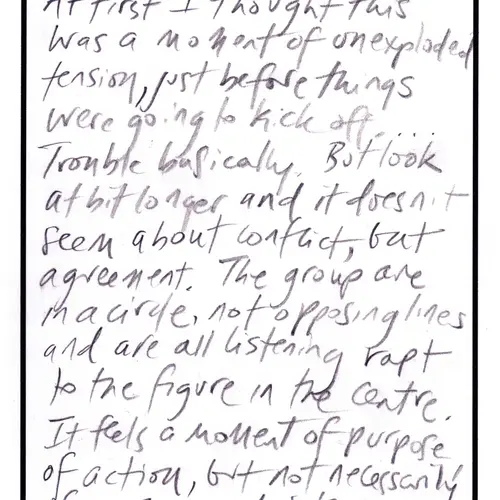 At first I thought this
was a moment of unexploded
tension, just before things
were going to kick off....
Trouble basically. But look
at bit longer and it doesn't
seem about conflict, but
agreement. The group are
in a circle, not opposing lines
and are all listening rapt
to the figure in the centre.
It feels a moment of purpose
of action, but not necessarily